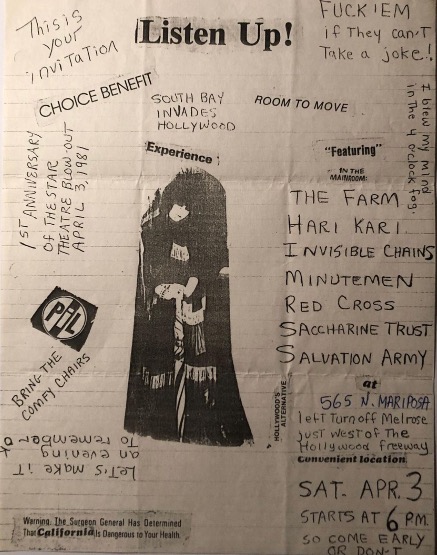 This is
your
invitation
Listen Up!
FUCK 'EM
if They can't
Take a joke!
CHOICE BENEFIT
SOUTH BAY
INVADES
HOLLYWOOD
ROOM TO MOVE
I blew my mind
in the 4 o'clock fog
1ST ANNIVERSARY
OF THE STAR
THEATRE BLOW-OUT
APRIL 3, 1981
Experience
"Featuring"
IN THE
MAINROOM:
THE FARM
HARI KARI
INVISIBLE CHAINS
MINUTEMEN
RED CROSS
SACCHARINE TRUST
SALVATION ARMY
PiL
BRING THE
COMFY CHAIRS
HOLLYWOOD'S
ALTERNATIVE
at
565 N. MARIPOSA
left Turn off Melrose
just west of The
Hollywood freeway
Convenient location
LeT's make iT
an evening
To remember
SAT. APR. 3
STARTS AT 6 PM.
SO COME EARLY
OR DON'T
Warning: The Surgeon General Has Determined
That California Is Dangerous to Your Health.